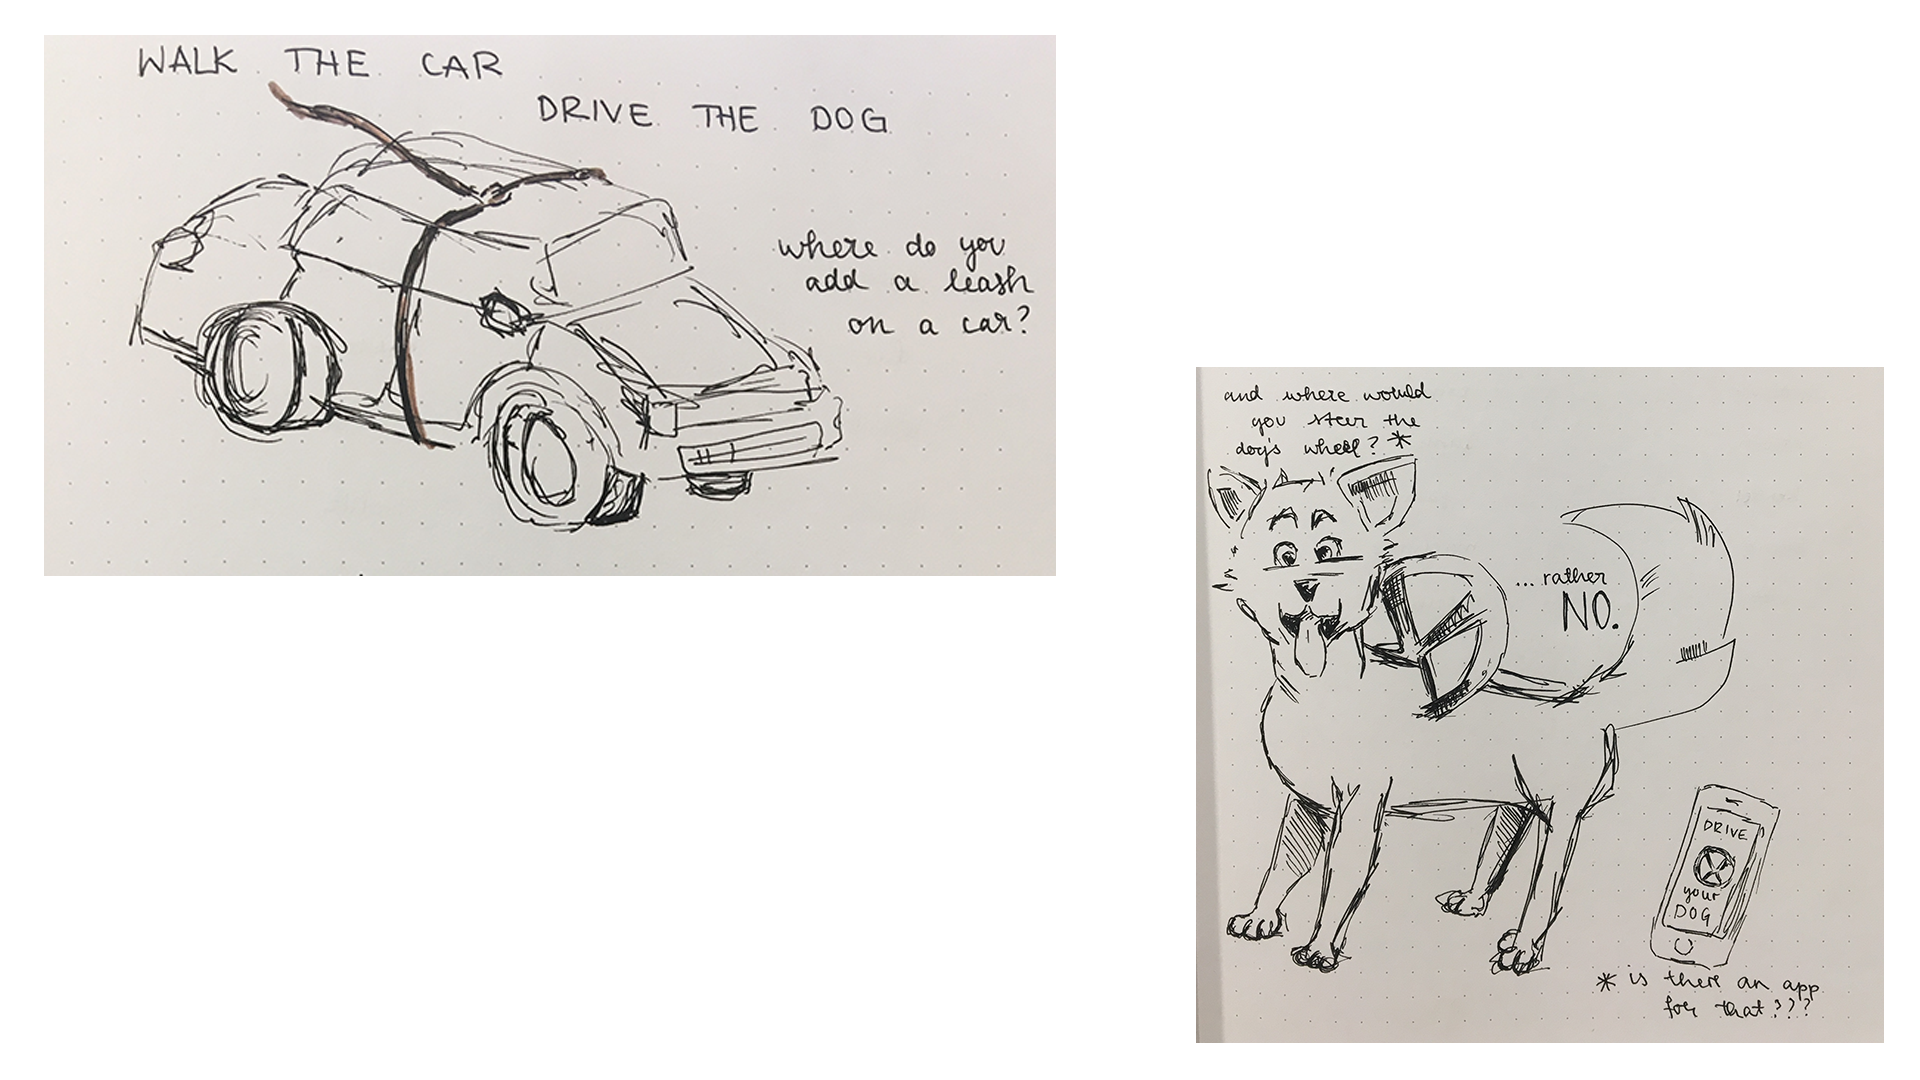 WALK THE CAR
DRIVE THE DOG
where do you
add a leash
on a car?
and where would
you steer the
dog's wheel? *
... rather
NO.
DRIVE
your
DOG
* is there an app
for that???